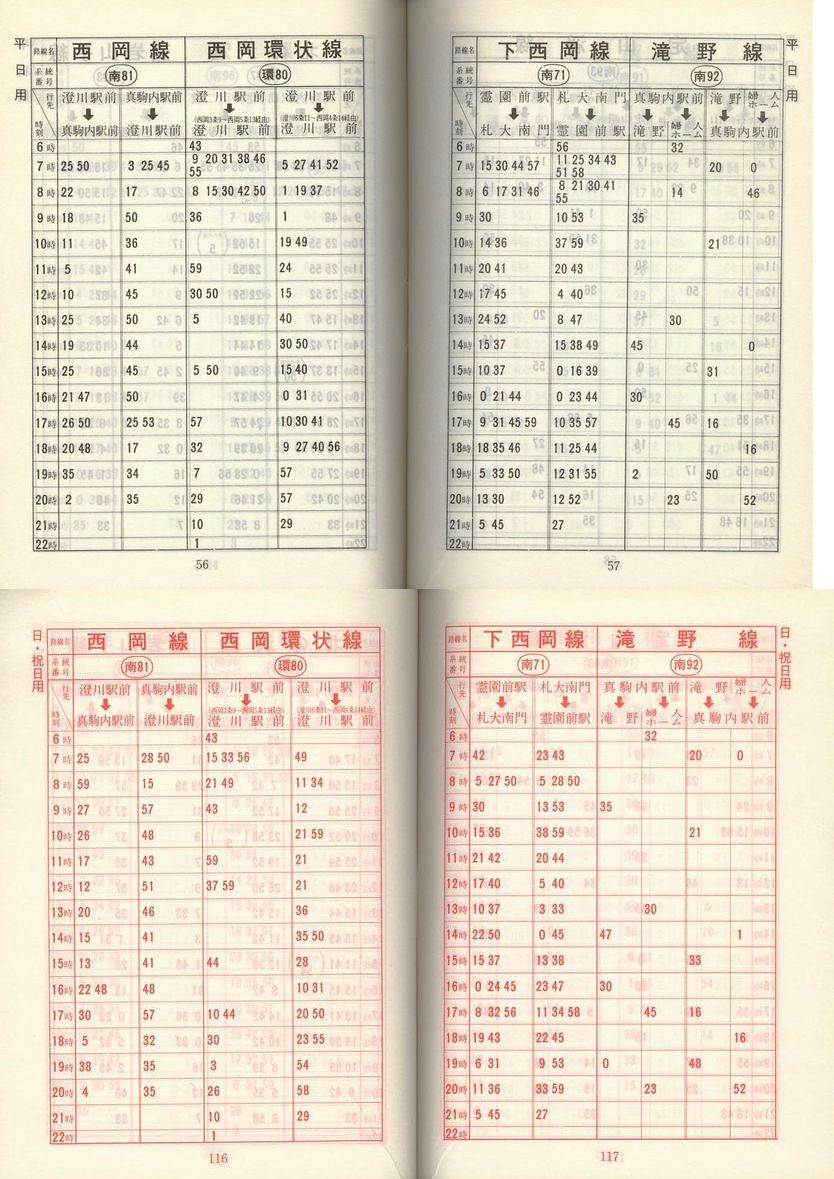 平日用
路線名 西岡線 西岡環状線
系統番号 南81 環80
行先 澄川駅前 真駒内駅前 澄川駅前 澄川駅前
(西岡3条9〜西岡5条13経由) (澄川6条11〜西岡4条14経由)
時刻 真駒内駅前 澄川駅前 澄川駅前 澄川駅前
6時 43
7時 25 50 3 25 45 9 20 31 38 46 5 27 41 52
55
8時 22 17 8 15 30 42 50 1 19 37
9時 18 50 36 1
10時 11 36 19 49
11時 5 41 59 24
12時 10 45 30 50 15
13時 25 50 5 40
14時 19 44 30 50
15時 25 45 5 50 15 40
16時 21 47 50 0 31
17時 26 50 25 53 57 10 30 41
18時 20 48 17 32 9 27 40 56
19時 35 34 7 57
20時 2 35 29 57
21時 10 29
22時 1
56
平日用
路線名 下西岡線 滝野線
系統番号 南71 南92
行先 霊園前駅 札大南門 真駒内駅前 滝野 婦人ホーム
時刻 札大南門 霊園前駅 滝野 婦人ホーム 真駒内駅前
6時 56 32
7時 15 30 44 57 11 25 34 43 20 0
51 58
8時 6 17 31 46 8 21 30 41 14 46
55
9時 30 10 53 35
10時 14 36 37 59 21
11時 20 41 20 43
12時 17 45 4 40
13時 24 52 8 47 30
14時 15 37 15 38 49 45 0
15時 10 37 0 16 39 31
16時 0 21 44 0 23 44 30
17時 9 31 45 59 10 35 57 45 16
18時 18 35 46 11 25 44 16
19時 5 33 50 12 31 55 2 50
20時 13 30 12 52 23 52
21時 5 45 27
22時
57
日・祝日用
路線名 西岡線 西岡環状線
系統番号 南81 環80
行先 澄川駅前 真駒内駅前 澄川駅前 澄川駅前
(西岡3条9〜西岡5条13経由) (澄川6条11〜西岡4条14経由)
時刻 真駒内駅前 澄川駅前 澄川駅前 澄川駅前
6時 43
7時 25 28 50 15 33 56 49
8時 59 15 21 49 11 34
9時 27 57 43 12
10時 26 48 21 59
11時 17 43 59 21
12時 12 51 37 59 21
13時 20 46 36
14時 15 41 35 50
15時 13 41 44 28
16時 22 48 48 10 31
17時 30 57 10 44 20 50
18時 5 32 30 23 55
19時 38 35 3 54
20時 4 35 26 58
21時 10 29
22時 1
116
日・祝日用
路線名 下西岡線 滝野線
系統番号 南71 南92
行先 霊園前駅 札大南門 真駒内駅前 滝野 婦人ホーム
時刻 札大南門 霊園前駅 滝野 婦人ホーム 真駒内駅前
6時 32
7時 42 23 43 20 0
8時 5 27 50 5 28 50
9時 30 13 53 35
10時 15 36 38 59 21
11時 21 42 20 44
12時 17 40 5 40
13時 10 37 3 33 30
14時 22 50 0 45 47 1
15時 15 37 13 38 33
16時 0 24 45 23 47 30
17時 8 32 56 11 34 58 45 16
18時 19 43 22 45 16
19時 6 31 9 53 0 48
20時 11 36 33 59 23 52
21時 5 45 27
22時
117